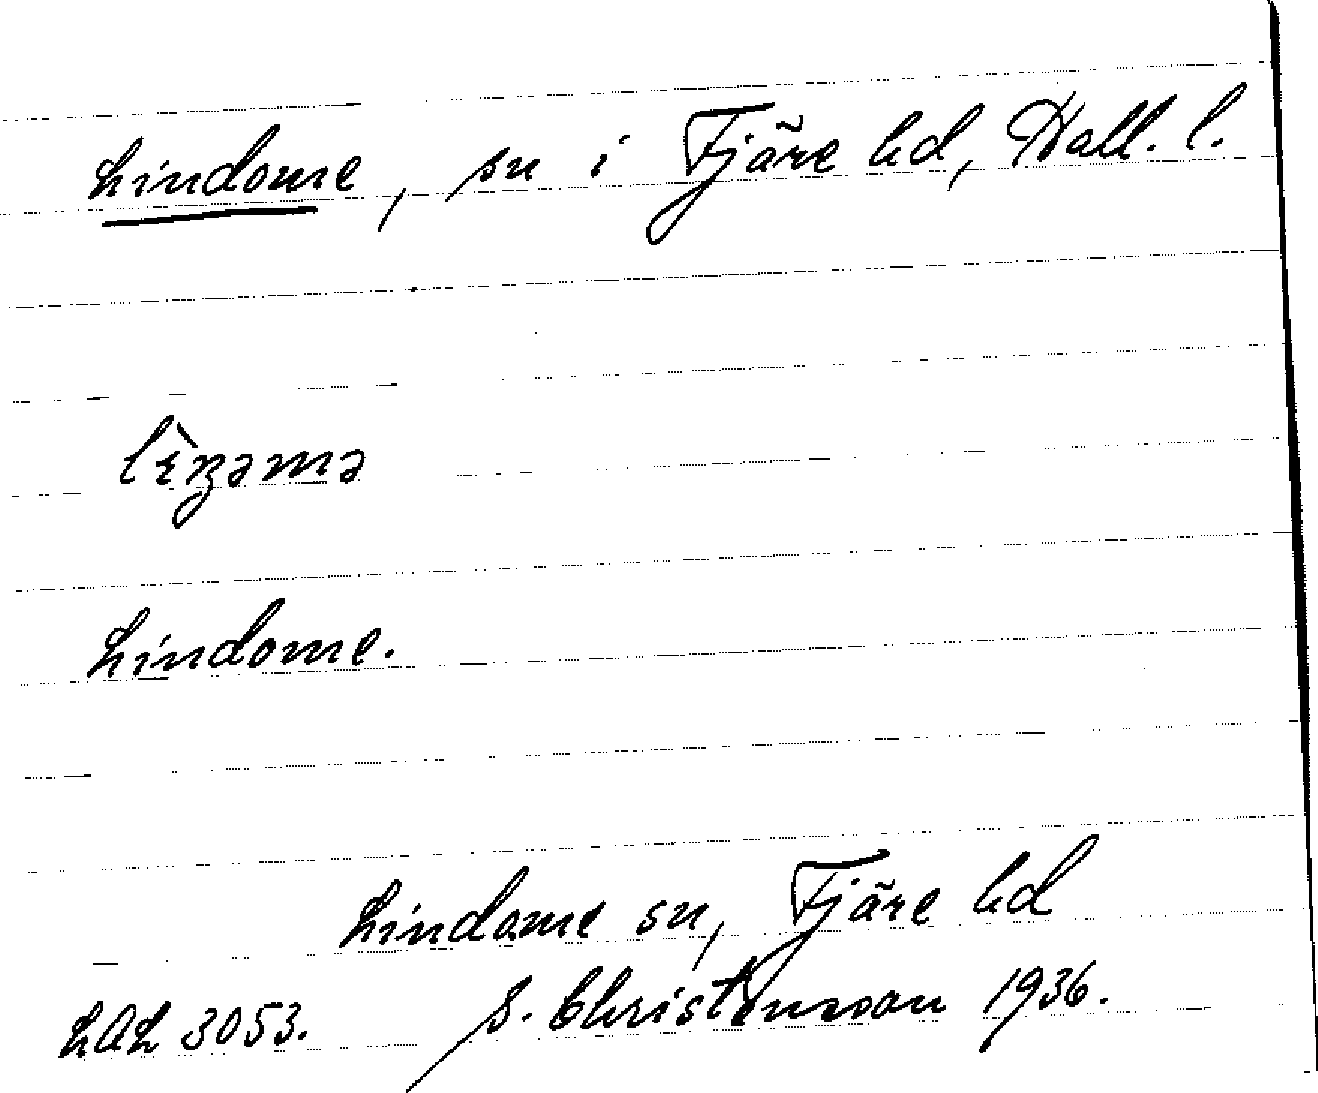 Lindome, sn i Fjäre hd, Hall. l.
Lindome.
Lindome sn, Fjäre hd
LAL 3053. S. Christensson 1936.